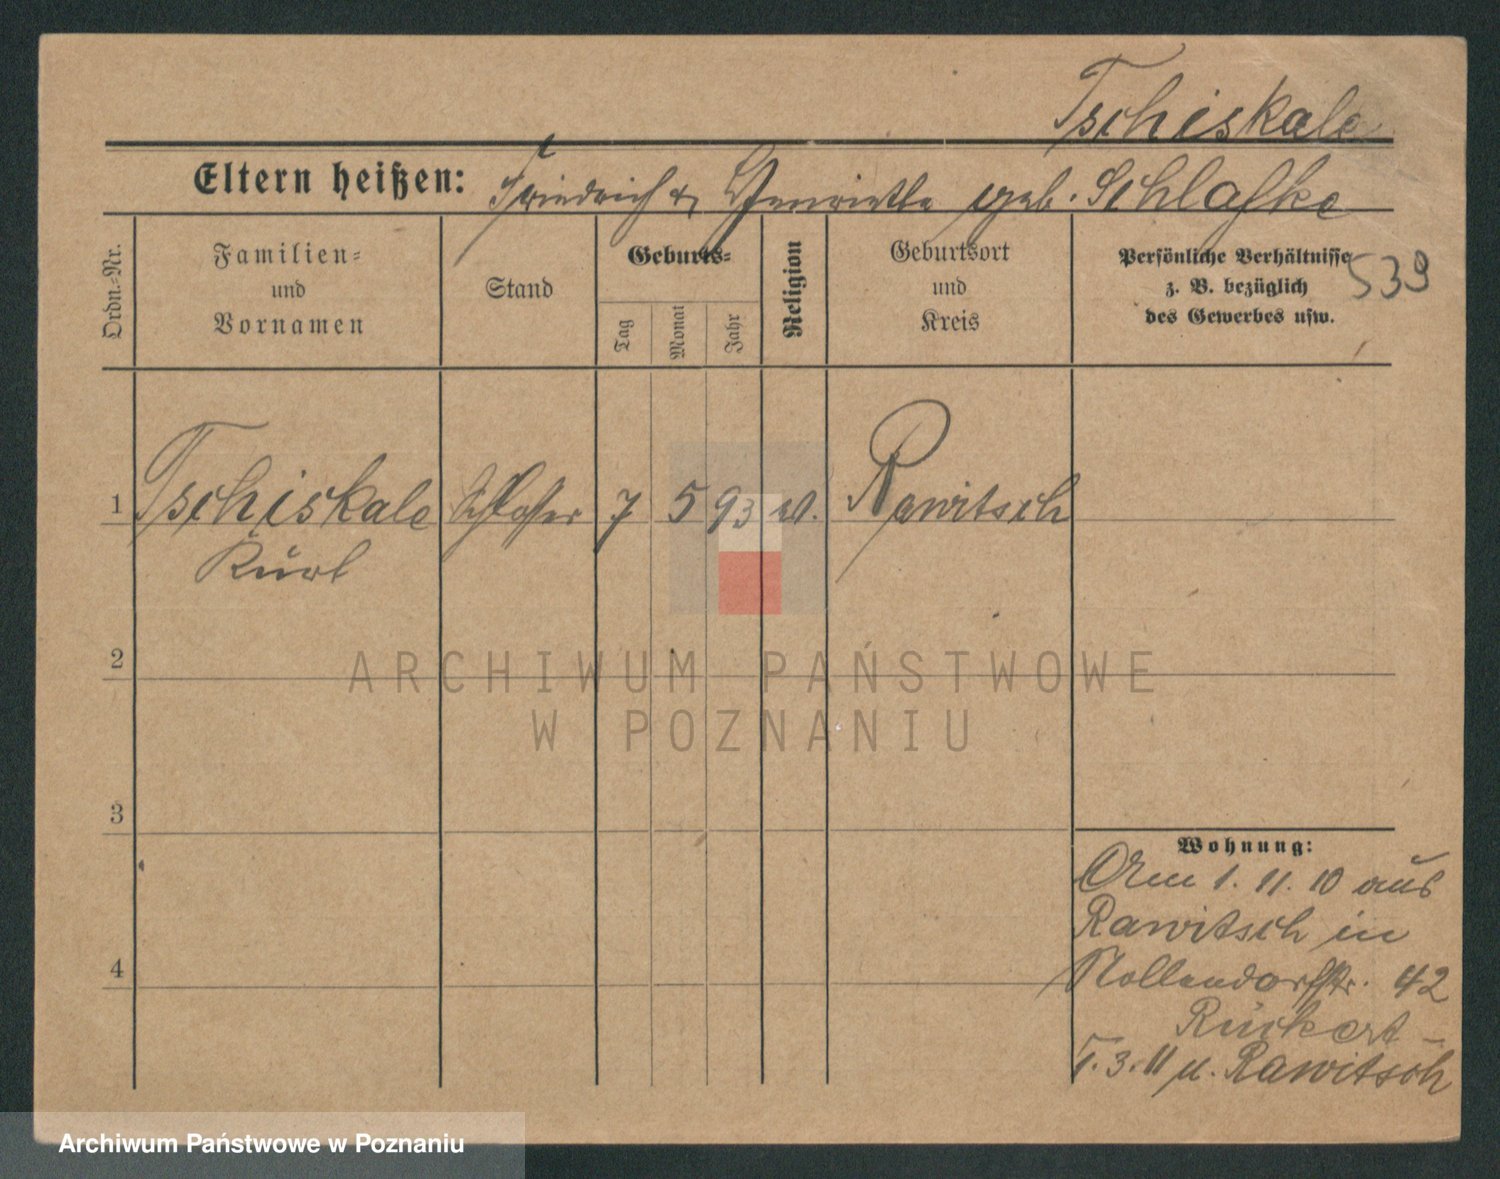 Tschiskale
Eltern heißen: Friedrich & Henriette geb. Schlafke
Ordn.-Nr.
Familien- und Vornamen
Stand
Geburts-
Tag
Monat
Jahr
Religion
Geburtsort und Kreis
Persönliche Verhältnisse
z. B. bezüglich
des Gewerbes usw.
539
1 Tschiskale Schlosser 7 5 93 ev. Rawitsch
Kurt
2
ARCHIWUM PAŃSTWOWE
W POZNANIU
3
4
Wohnung:
Am 1. 11. 10 aus
Rawitsch in
Nollendorfstr. 42
Rückert
1. 3. 11 n. Rawitsch
Archiwum Państwowe w Poznaniu